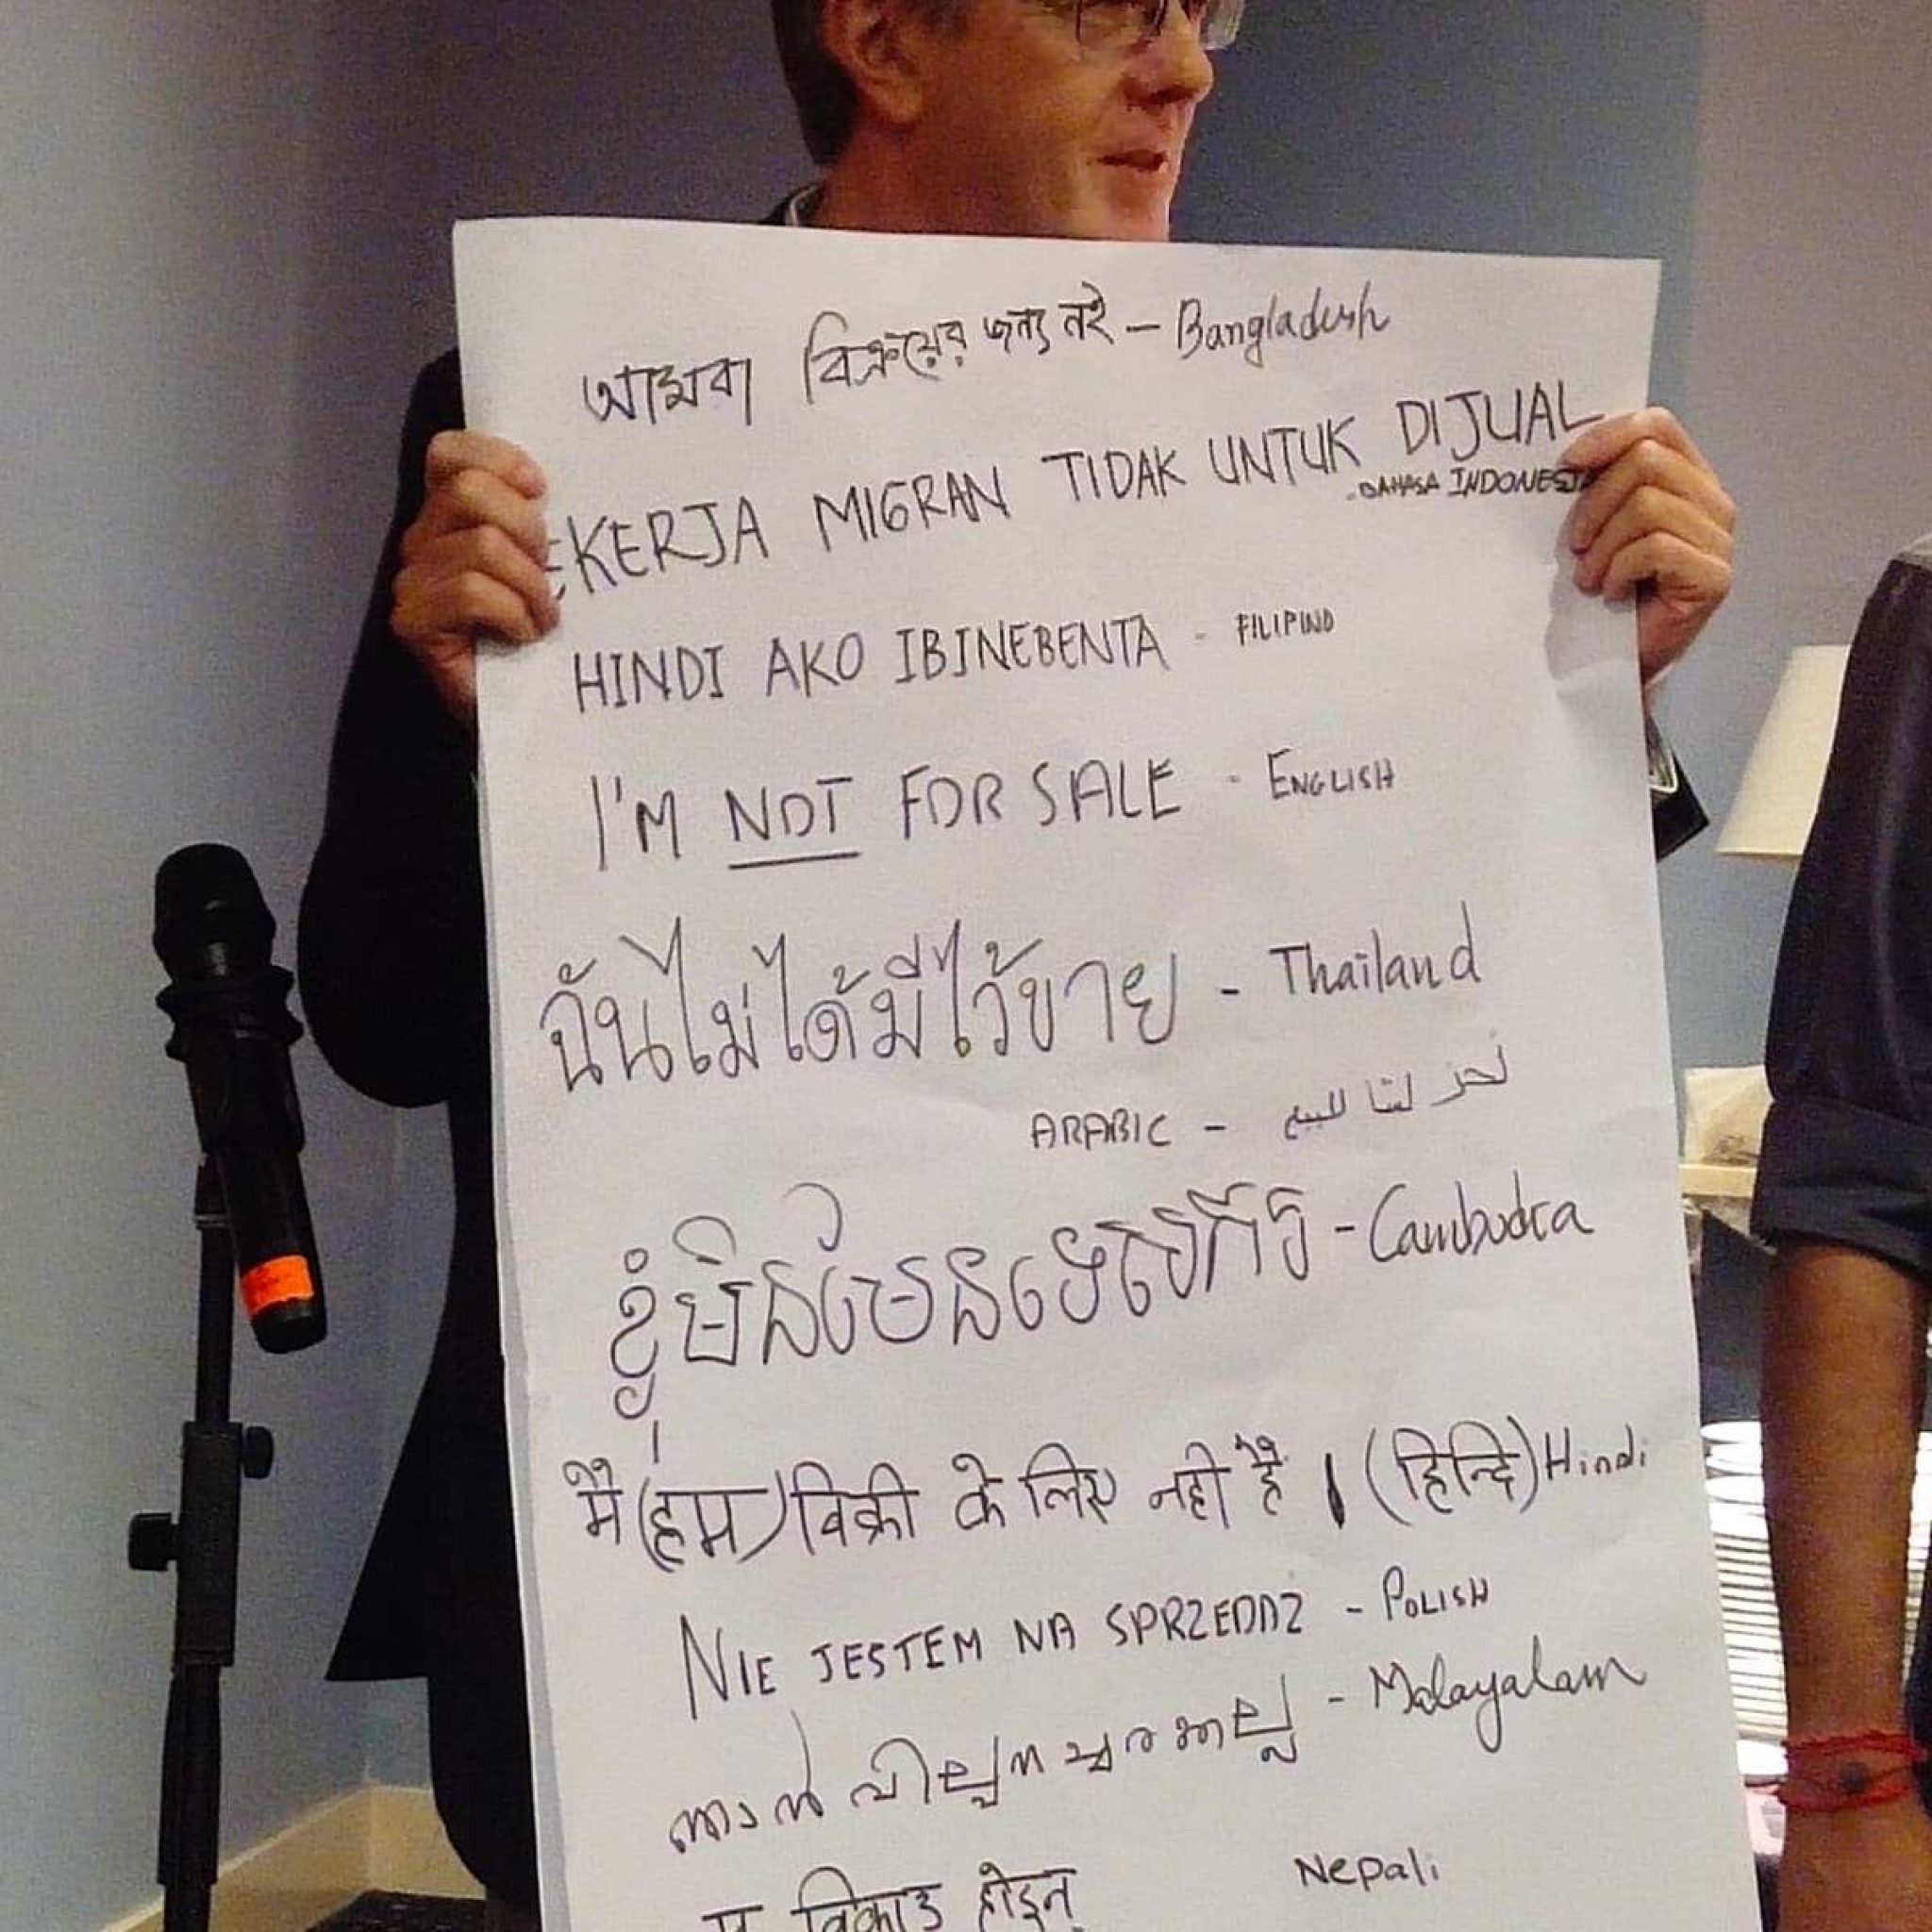 আমরা বিক্রয়ের জন্য নই – Bangladesh
EKERJA MIGRAN TIDAK UNTUK DIJUAL
BAHASA INDONESIA
HINDI AKO IBINEBENTA - FILIPINO
I'M NOT FOR SALE - ENGLISH
ฉันไม่ได้มีไว้ขาย - Thailand
ARABIC - نحن لسنا للبيع
ខ្ញុំមិនមែនទេ - Cambodia
मै (हम) बिक्री के लिए नही है । (हिन्दि) Hindi
NIE JESTEM NA SPRZEDAZ - POLISH
ഞാൻ - Malayalam
म बिकाउ होइन् Nepali